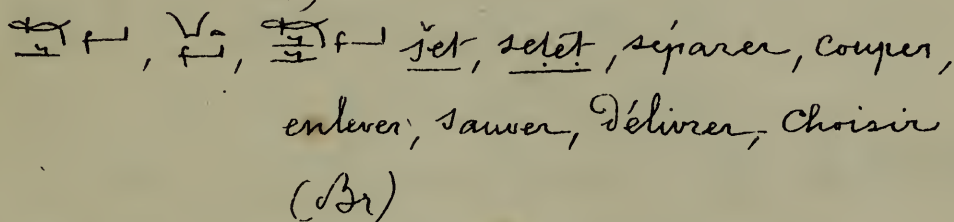 šet, seṭeṭ, séparer, couper,
enlever, sauver, délivrer, choisir
(Br)